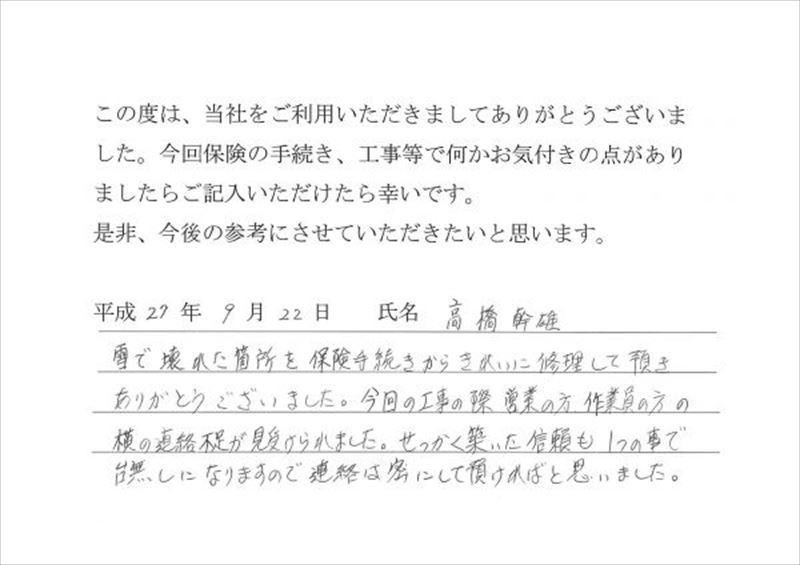 この度は、当社をご利用いただきましてありがとうございま
した。今回保険の手続き、工事等で何かお気付きの点があり
ましたらご記入いただけたら幸いです。
是非、今後の参考にさせていただきたいと思います。
平成 27 年 9 月 22 日 氏名 高橋幹雄
雪で壊れた箇所を保険手続きからきれいに修理して頂き
ありがとうございました。今回の工事の際営業の方作業員の方の
横の連絡不足が見受けられました。せっかく築いた信頼も1つの事で
台無しになりますので連絡は密にして頂ければと思いました。